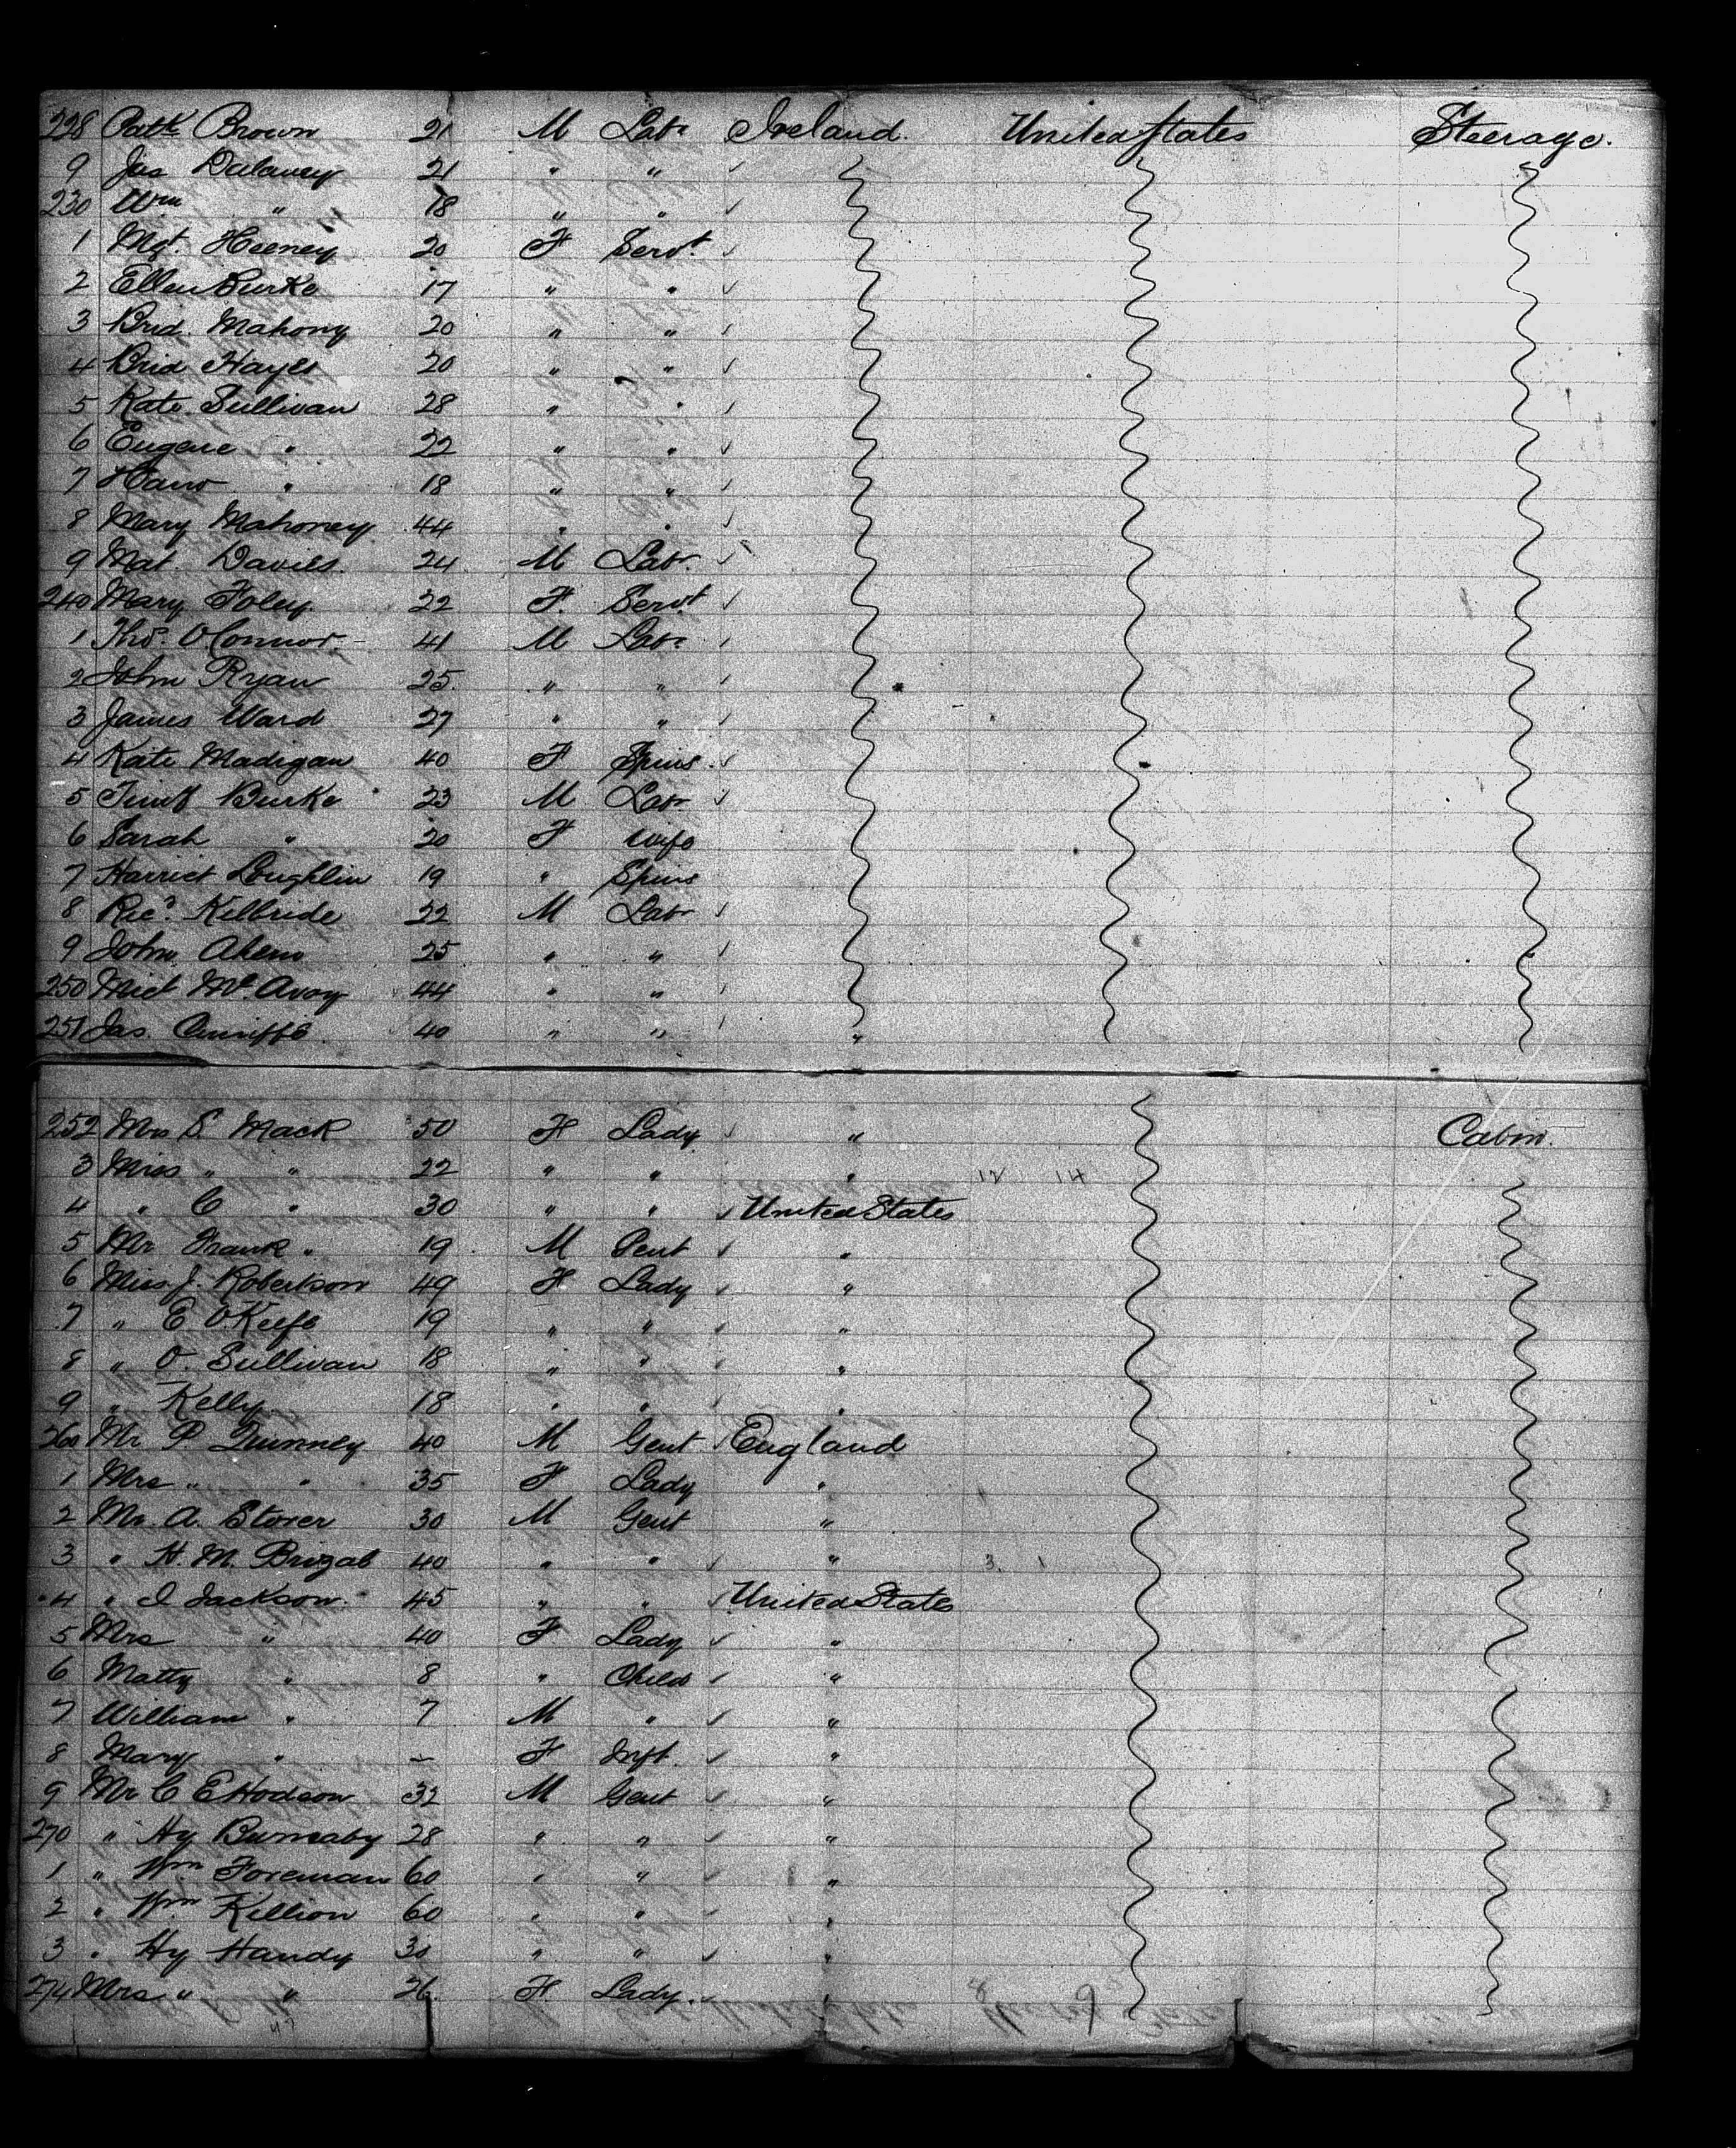 228 Patk Brown 21 M Labr Ireland. United States Steerage.
9 Jas Dulaney 21 " "
230 Wm " 18 " "
1 Mgt. Heeney 20 F Servt.
2 Ellen Burke 17 " "
3 Brid. Mahony 20 " "
4 Brid Hayes 20 " "
5 Kate Sullivan 28 " "
6 Eugene " 22 " "
7 " 18 " "
8 Mary Mahoney 44 " "
9 Mat. Davies 24 M Labr.
240 Mary Foley 22 F. Servt
1 Thos. O'Connor 41 M Labr
2 John Ryan 25 " "
3 James Ward 27 " "
4 Kate Madigan 40 F Spins.
5 Timy Burke 23 M Labr
6 Sarah " 20 F Wife
7 Harriet Loughlin 19 " Spins
8 Ricd Kilbride 22 M Labr
9 John Ahern 25 " "
250 Micl McAvoy 44 " "
251 Jas. Cunniffe 40 " " "
252 Mrs S. Mack 50 F Lady " Cabin.
3 Miss " " 22 " " " 12 14
4 " C " 30 " " United States
5 Mr Frank " 19 M Gent "
6 Miss J. Robertson 49 F Lady "
7 " E OKeefe 19 " " "
8 " O. Sullivan 18 " " "
9 " Kelly 18 " " "
260 Mr P. Quinney 40 M Gent England
1 Mrs " " 35 F Lady "
2 Mr. A. Storer 30 M Gent "
3 " H. M. Brizal 40 " " " 3. 1
4 " I Jackson 45 " " United States
5 Mrs " 40 F Lady "
6 Matty " 8 " Child "
7 William " 7 M " "
8 Mary " — F Inft. "
9 Mr C E Hodson 32 M Gent "
270 " Hy Burnaby 28 " " "
1 " Wm Foreman 60 " " "
2 " Wm Killion 60 " " "
3 " Hy Handy 30 " " "
274 Mrs " " 26. F Lady. "